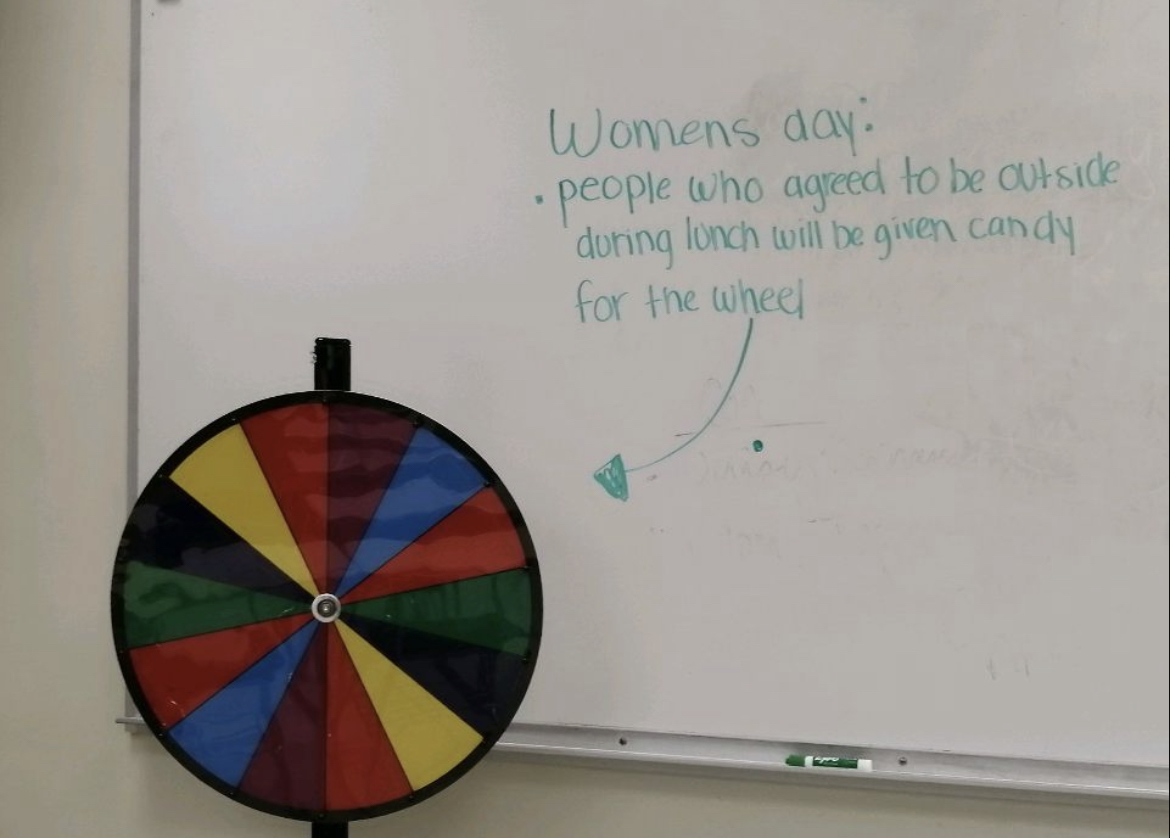 Womens day:
• people who agreed to be outside
during lunch will be given candy
for the wheel